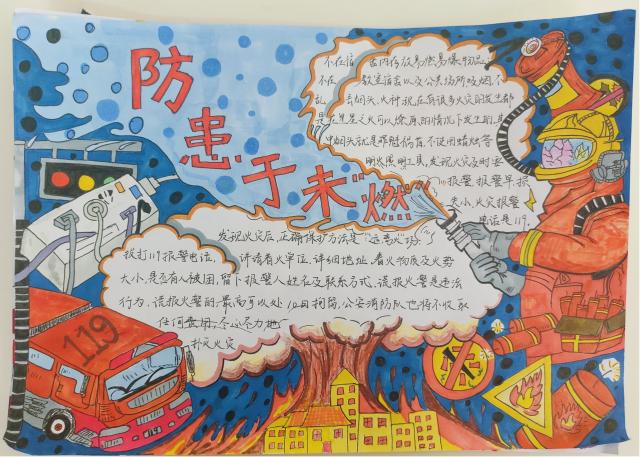 防患于未“燃”
不在宿舍内存放易燃易爆物品,
不在教室宿舍以及公共场所吸烟,不
乱丢烟头、火种现在有很多火灾的发生都
是在星星之火可以燎原的情况下发生的,其
中烟头就是罪魁祸首.不使用蜡烛等
明火照明工具,发现火灾及时
报警,报警早,损
失小,火灾报警
电话是119.
发现火灾后,正确保护方法是“远离火”
拔打119报警电话, 讲清着火单位,详细地址,着火物质及火势
大小,是否有人被困,留下报警人姓名及联系方式,谎报火警是违法
行为,谎报火警的,最高可以处10日拘留,公安消防队也将不收取
任何费用,尽心尽力地
扑灭火灾
119
119